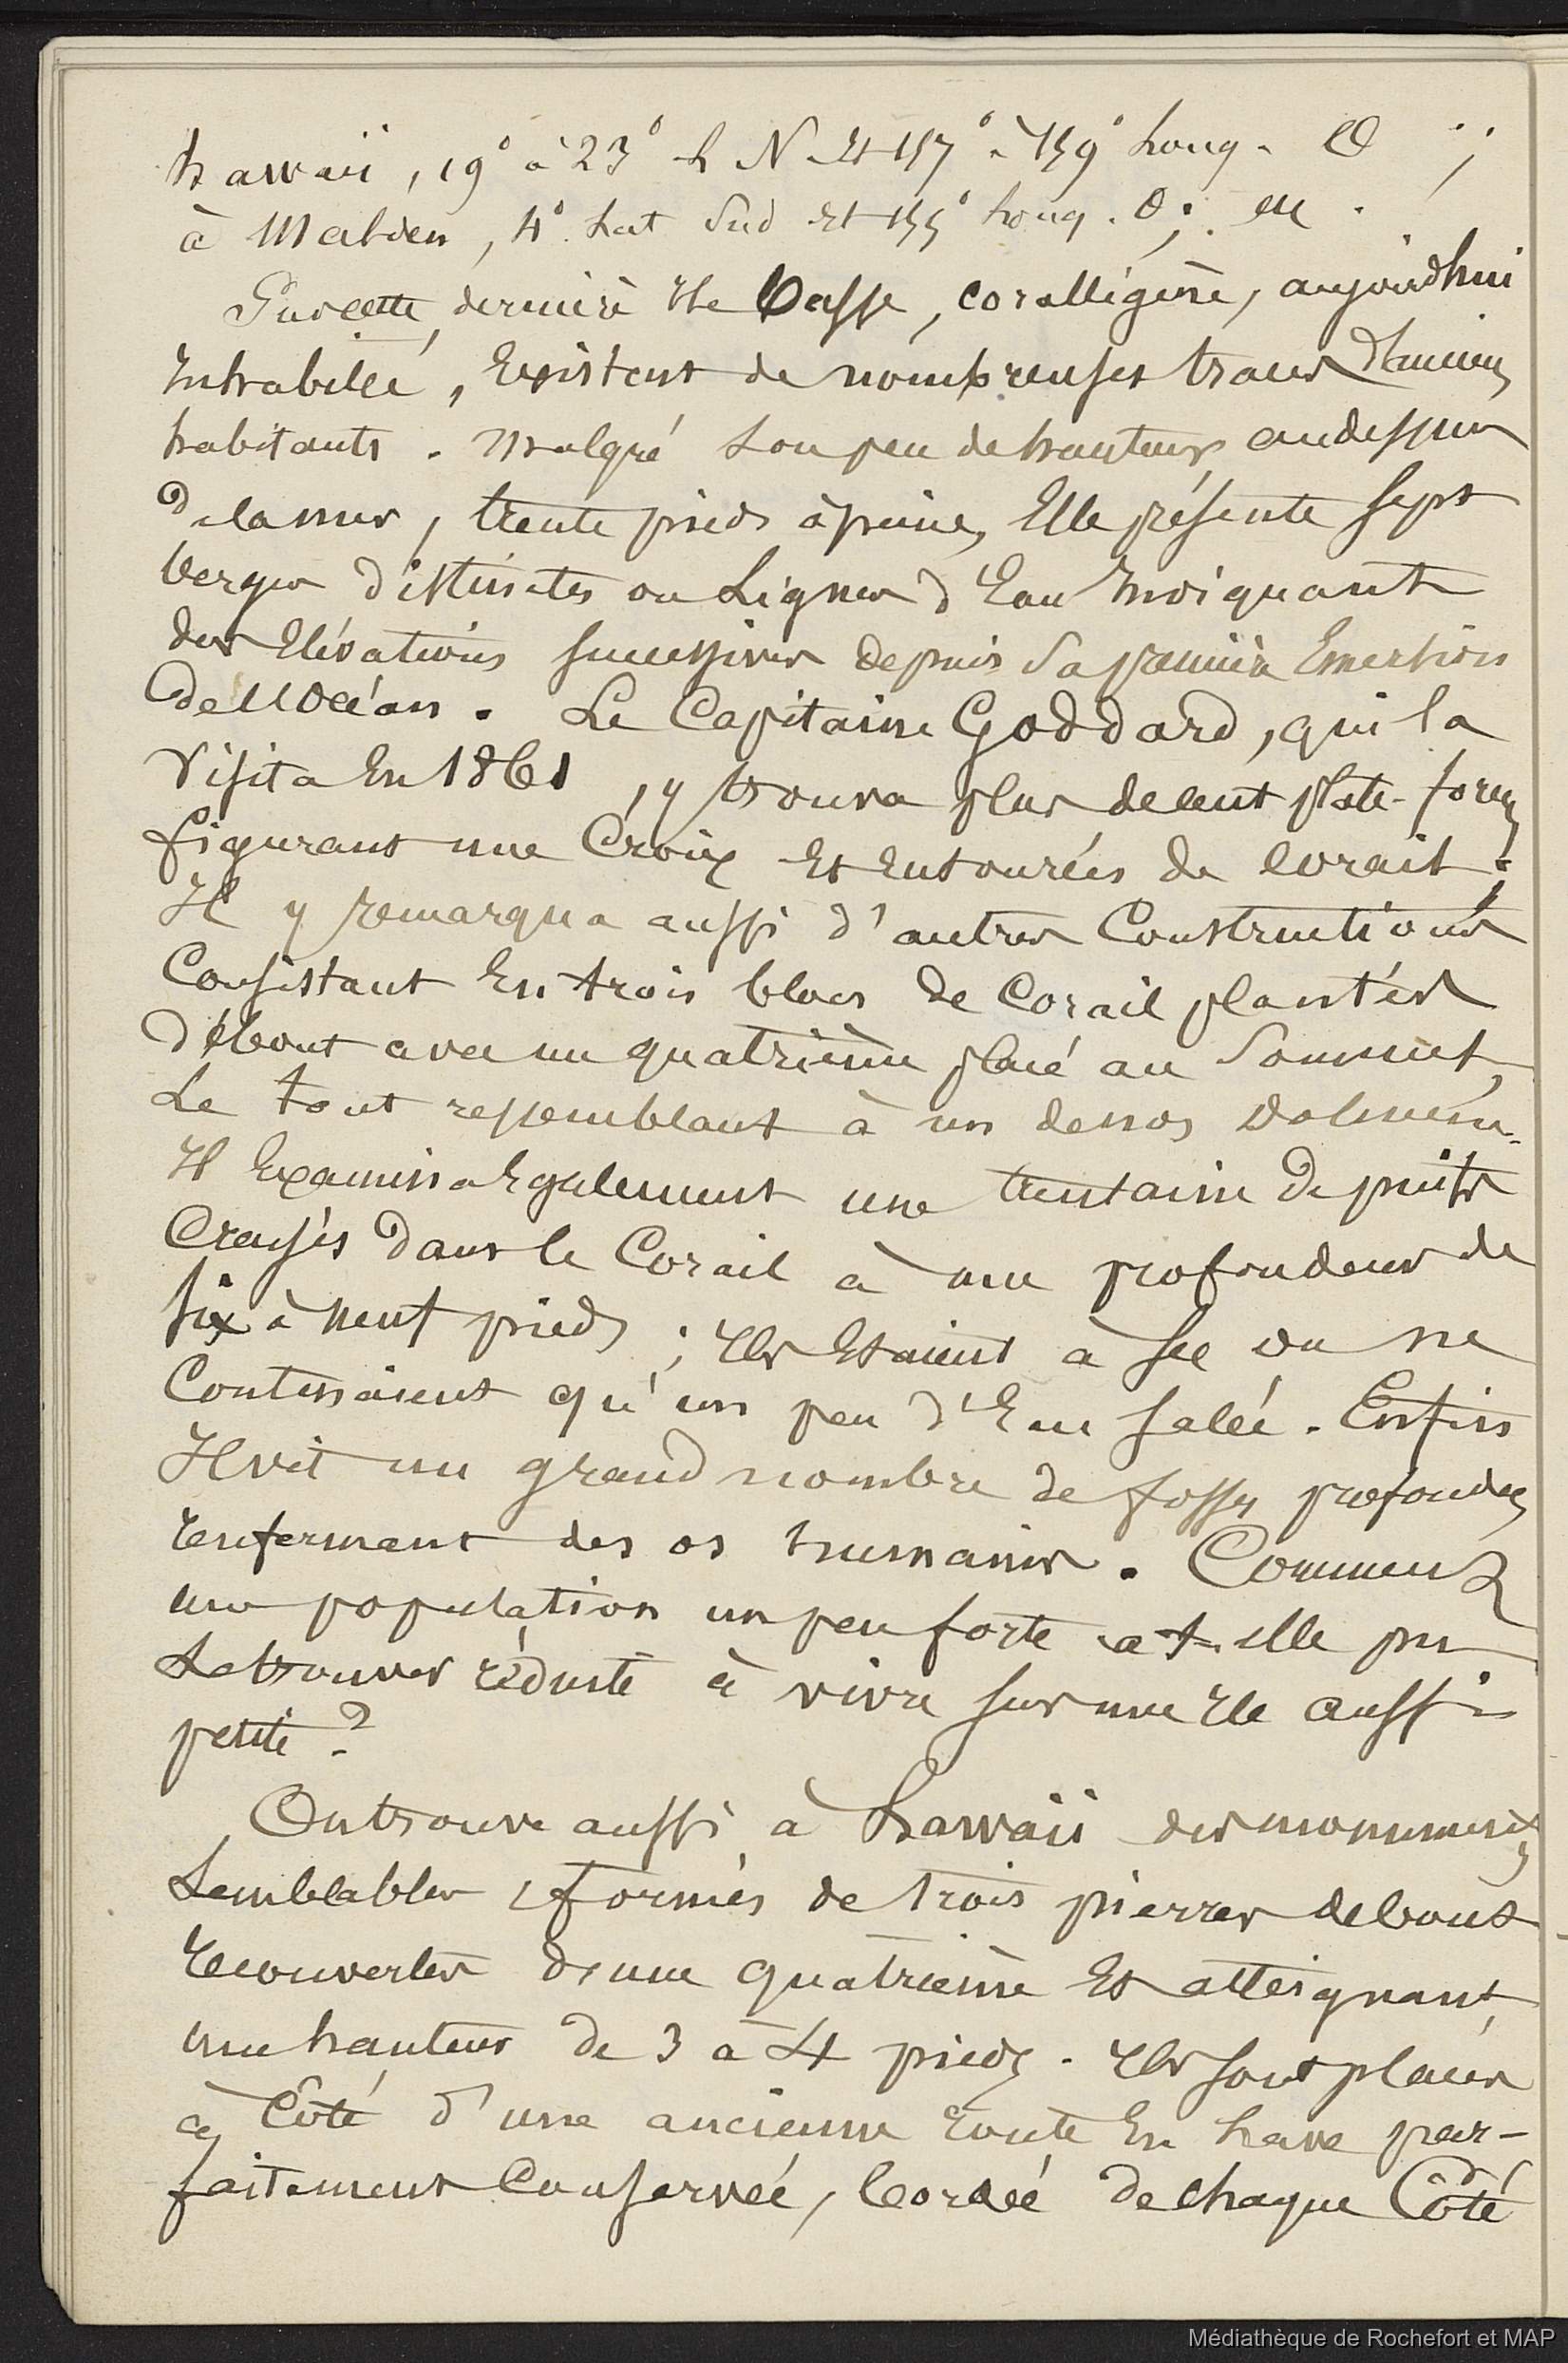 hawaii, 19° à 23° L N et 157° à 159° Long. O ;
à Malden, 4° Lat Sud et 155° Long. O ;
Sur cette dernière Ile basse, coralligène, aujourdhui
Inhabitée, Existent de nombreuses traces d'anciens
habitants. Malgré son peu de hauteur audessus
de la mer, trente pieds à peine, Elle présente sept
berges distinctes ou Lignes d'Eau Indiquant
des Elévations successives depuis sa première Emersion
de l'Océan. Le Capitaine Goddard, qui la
Visita En 1861, y trouva plus de cent plate-formes
figurant une Croix Et Entourées de corail ;
Il y remarqua aussi d'autres Constructions
Consistant En trois blocs de Corail plantés
debout avec un quatrième placé au Sommet,
Le tout ressemblant à un de nos Dolmens.
Il Examina Egalement une trentaine de puits
Creusés dans le Corail à une profondeur de
six à neuf pieds ; Ils Etaient à sec ou ne
Contenaient qu'un peu d'Eau salée. Enfin
Il vit un grand nombre de fosses profondes
renfermant des os humains. Comment
une population un peu forte a-t-elle pu
se trouver réduite à vivre sur une Ile aussi
petite ?
On trouve aussi à hawaii des monuments
semblables, formés de trois pierres debout
recouvertes d'une quatrième Et atteignant
une hauteur de 3 à 4 pieds. Ils sont placés
à Côté d'une ancienne route En Lave par-
faitement Conservée, bordée de chaque Côté
Médiathèque de Rochefort et MAP